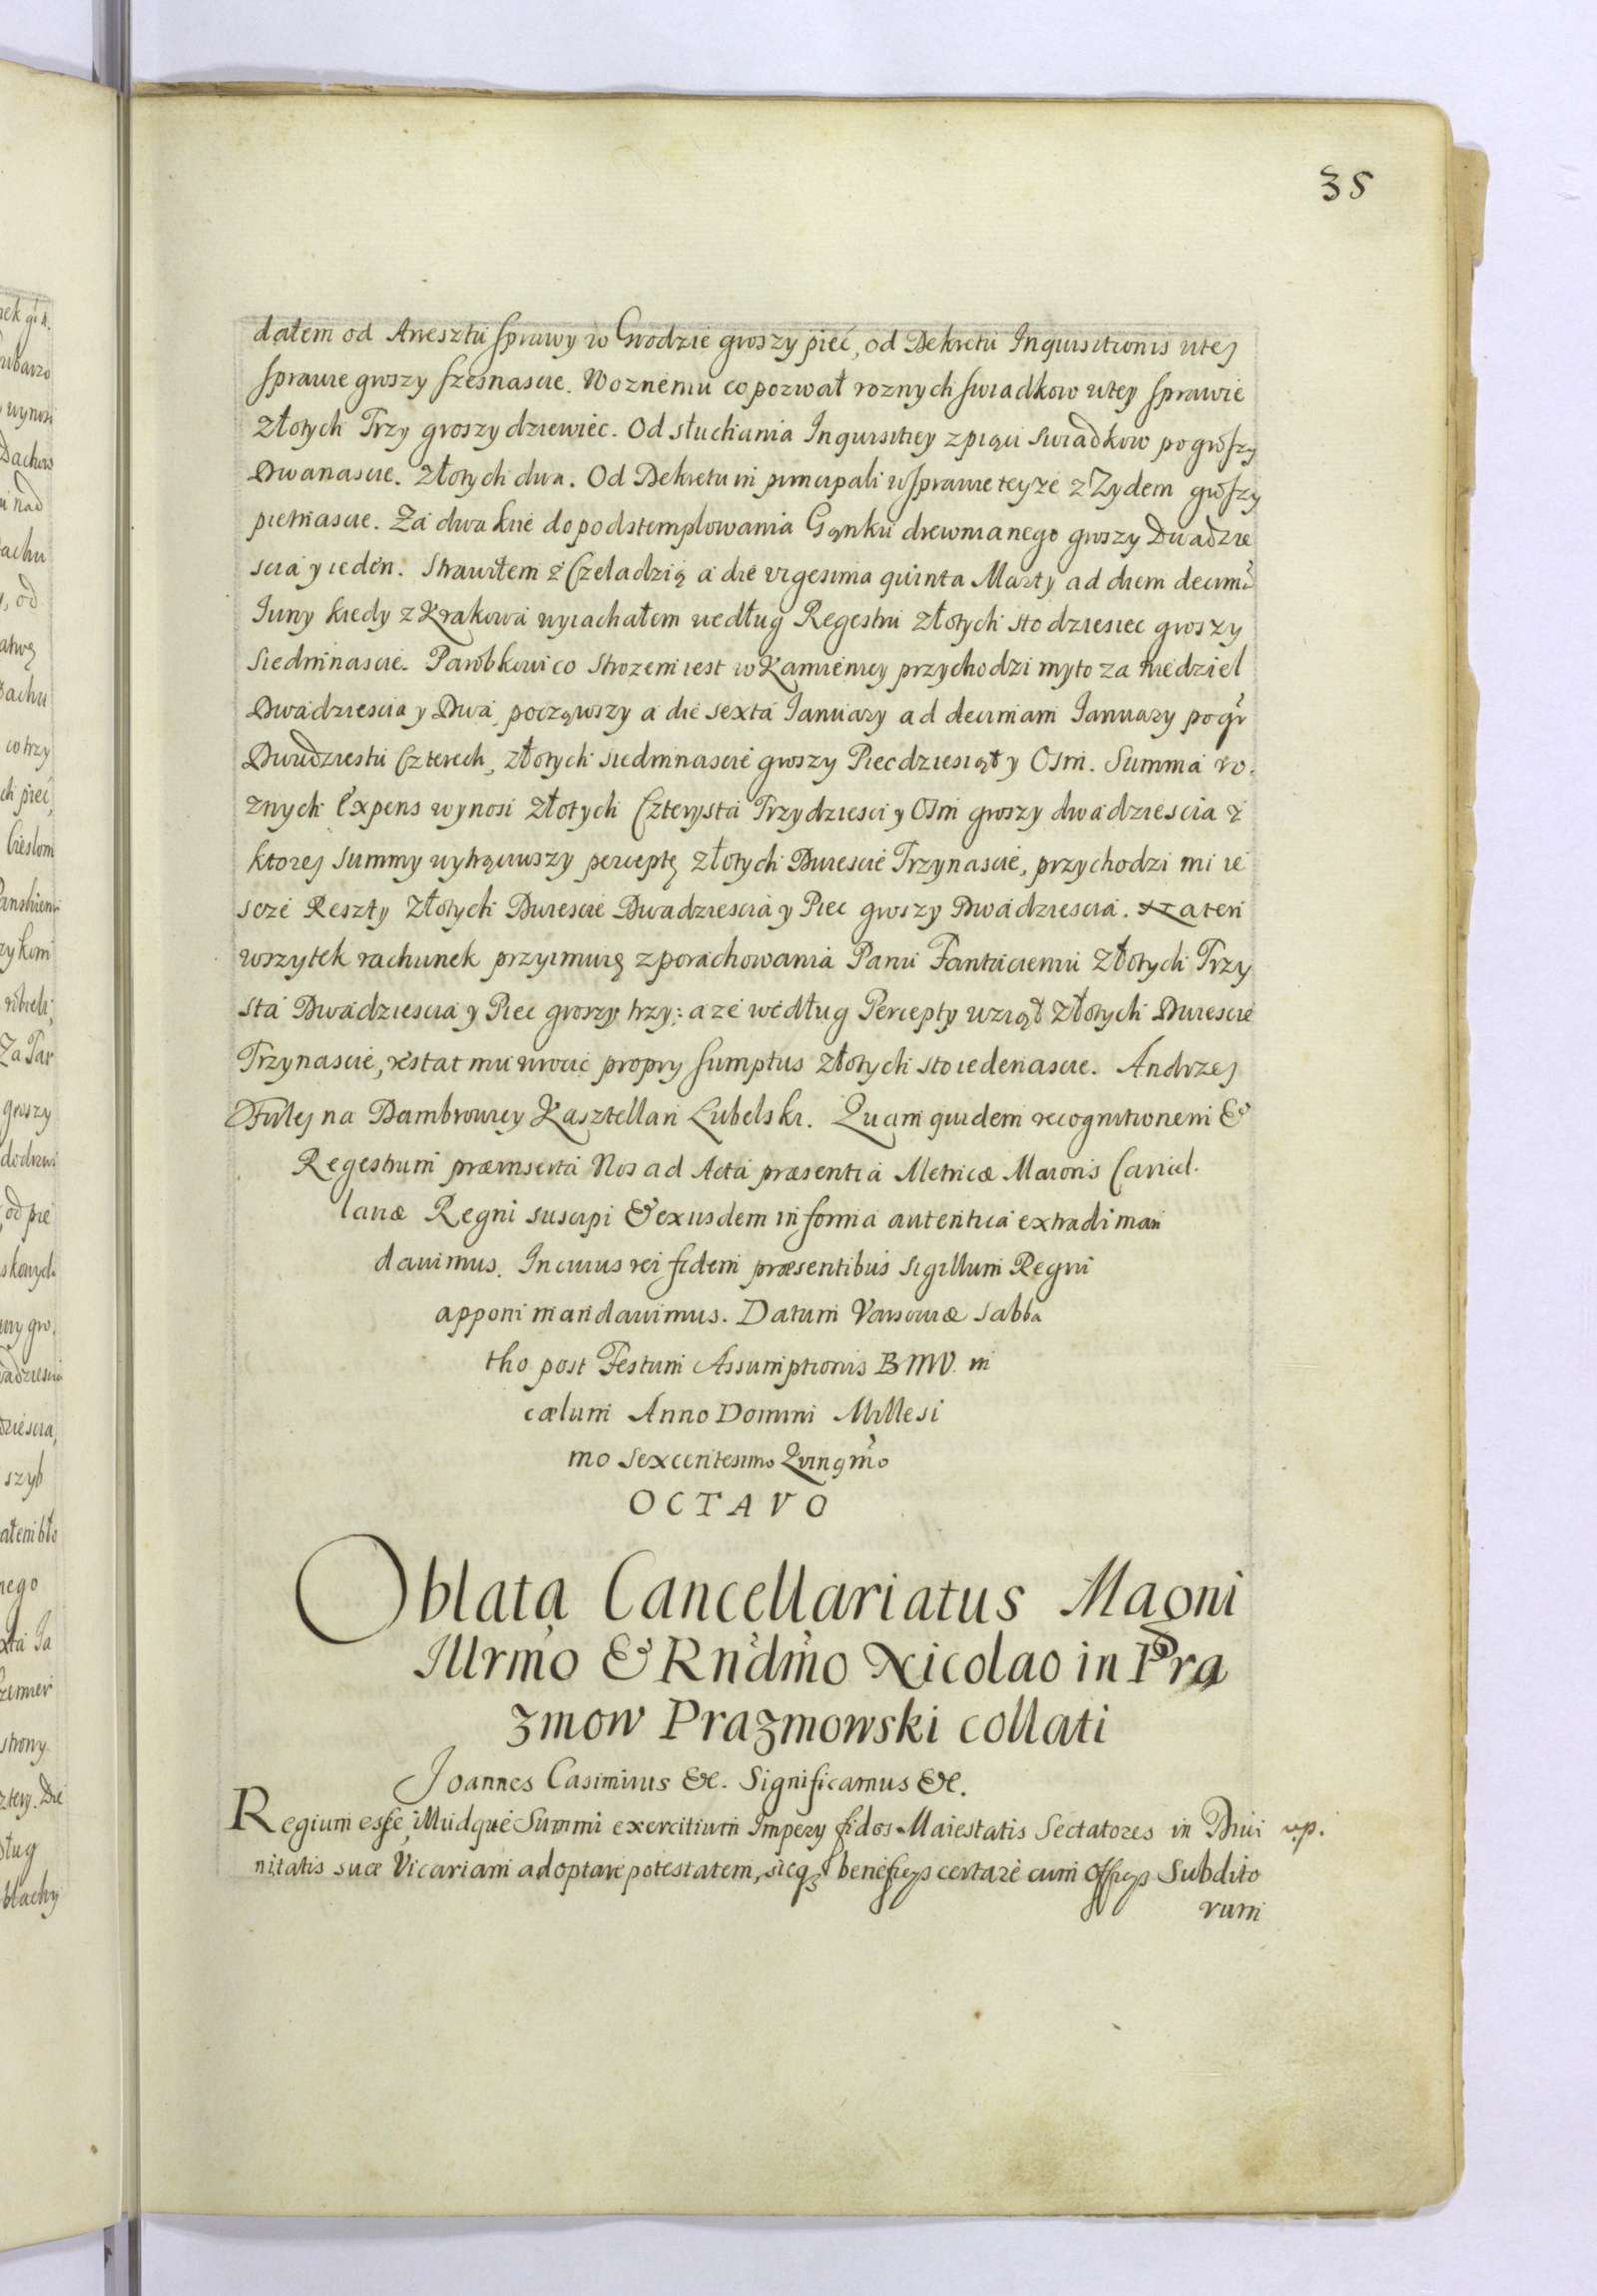 35
dałem od Aresztu sprawy w Grodzie groszy pieć, od Dekretu Inquisitionis wtej
sprawie groszy szesnascie. Woznemu co pozwał roznych swiadkow wtey sprawie
Złotych Trzy groszy dziewiec. Od słuchania Inquisitiey z piąci swiadkow po groszy
Dwanascie. Złotych dwa. Od Dekretu in principali w sprawie teyze z Zydem groszy
pietnascie. Za dwa knie do podstemplowania Gąnku drewnianego groszy Dwadzie
scia y ieden. Strawiłem z Czeladzią a die vigesima quinta Marty ad diem decimã
Iuny kiedy z Krakowa wyiachałem według Regestru złotych sto dziesiec groszy
Siedmnascie. Parobkowi co Strozem iest w Kamienicy przychodzi myto za niedziel
Dwadziescia y Dwa począwszy a die sexta Ianuary ad decimam Ianuary po gr
Dwudziestu Czterech, złotych siedmnascie groszy Piecdziesiąt y Osm. Summa ro.
znych Expens wynosi złotych Czterysta Trzydziesci y Osm groszy dwadziescia z
ktorej Summy wytrąciwszy perceptę złotych Dwiescie Trzynascie, przychodzi mi ie
scze Reszty Złotych Dwiescie Dwadziescia y Piec groszy Dwadziescia. Ja ten
wszytek rachunek przyimuię z porachowania Panu Fantuciemu Złotych Trzy
sta Dwadziescia y Piec groszy trzy: a ze według Percepty wziął złotych Dwiescie
Trzynascie, restat mu wrocic propry sumptus złotych sto iedenascie. Andrzej
Firlej na Dambrowicy Kasztellan Lubelski. Quam quidem recognitionem &
Regestrum præinserta Nos ad Acta præsentia Metricæ Maioris Cancel.
lariæ Regni suscipi & exusdem in forma autentica extradi man
davimus. In cuius rei fidem præsentibus Sigillum Regni
apponi mandavimus. Datum Varsoviæ Sabba
tho post Festum Assumptionis BMV. in
cælum Anno Domini Millesi
mo Sexcentesimo Qvinqmo
OCTAVO
Oblata Cancellariatus Magni
Illrmo & Rndmo Nicolao in Pra
zmow Prazmowski collati
Joannes Casimirus &c. Significamus &c.
Regium esse, illudque Summi exercitium Impery fidos Maiestatis Sectatores in Divi
nitatis suæ Vicariam adoptare potestatem, sicq; benefficys certare cum officys Subdito
rum